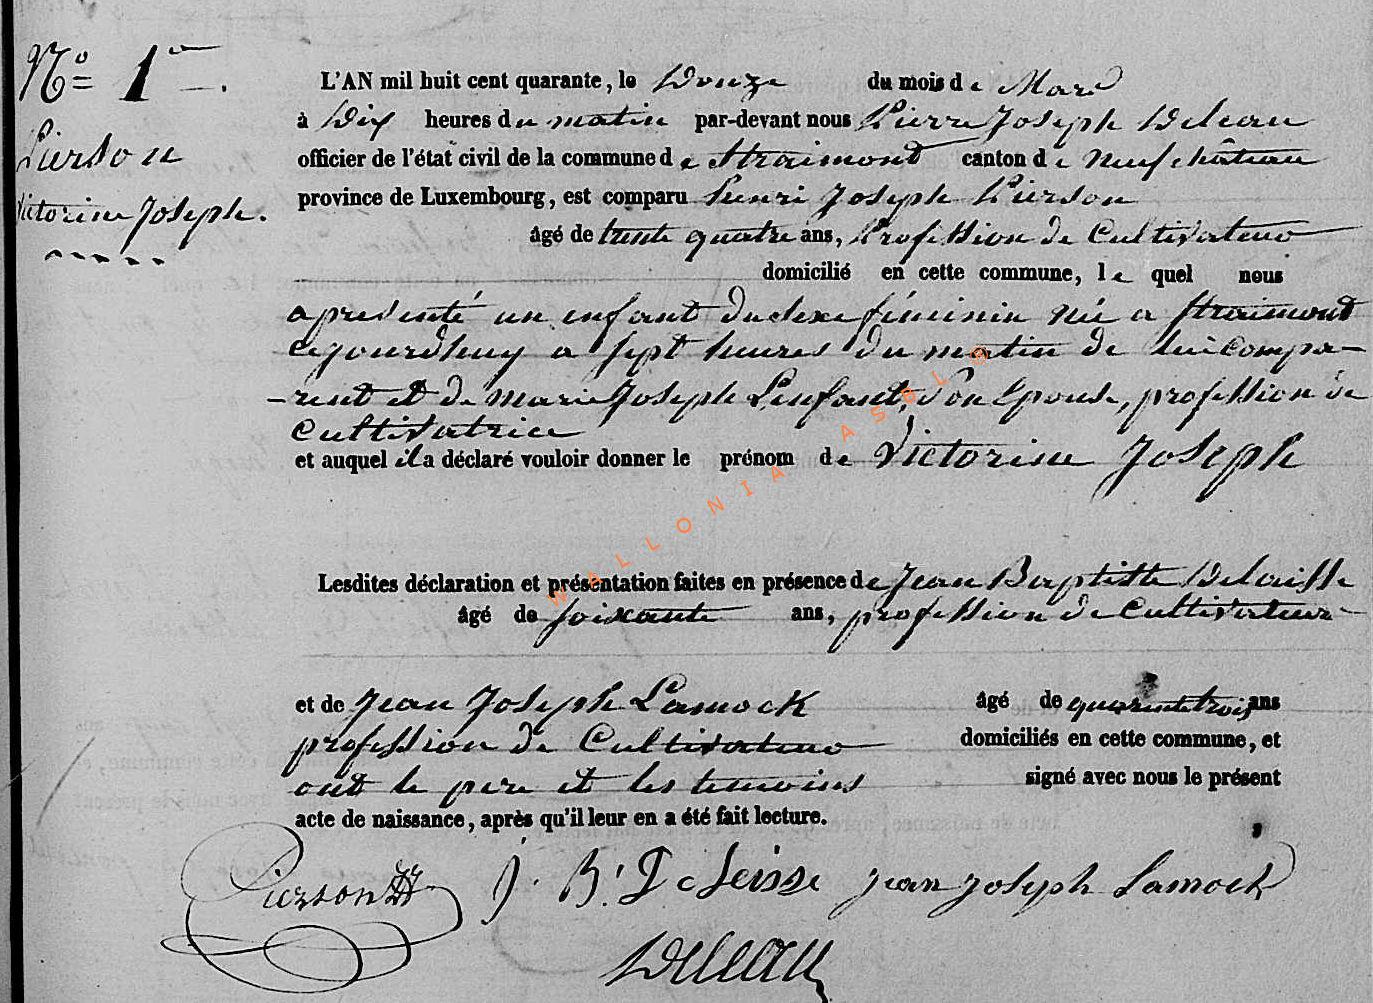 No 1er.
Pierson
Victorine Joseph.
L'AN mil huit cent quarante, le Douze du mois de Mars
à Dix heures du matin par-devant nous Pierre Joseph Deleau
officier de l'état civil de la commune de Straimont canton de Neufchâteau
province de Luxembourg, est comparu henri Joseph Pierson
âgé de trente quatre ans, Profession de Cultivateur
domicilié en cette commune, le quel nous
a presenté un enfant du sexe féminin née a Straimont
cejourdhuy a sept heures du matin de lui compa-
-rent et de marie Joseph Lenfant, son Epouse, profession de
Cultivatrice
et auquel il a déclaré vouloir donner le prénom de Victorine Joseph
Lesdites déclaration et présentation faites en présence de Jean Baptiste Delaisse
âgé de soixante ans, profession de Cultivateur
et de Jean Joseph Lamock âgé de quarante trois ans
profession de Cultivateur domiciliés en cette commune, et
ont le pere et les temoins signé avec nous le présent
acte de naissance, après qu'il leur en a été fait lecture.
Pierson HJ J. B. De Leisse Jean Joseph Lamock
Deleau
WALLONIA ASBL ©